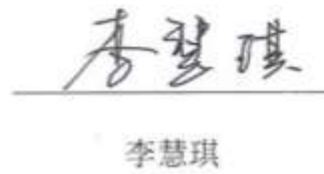 李慧琪
李慧琪